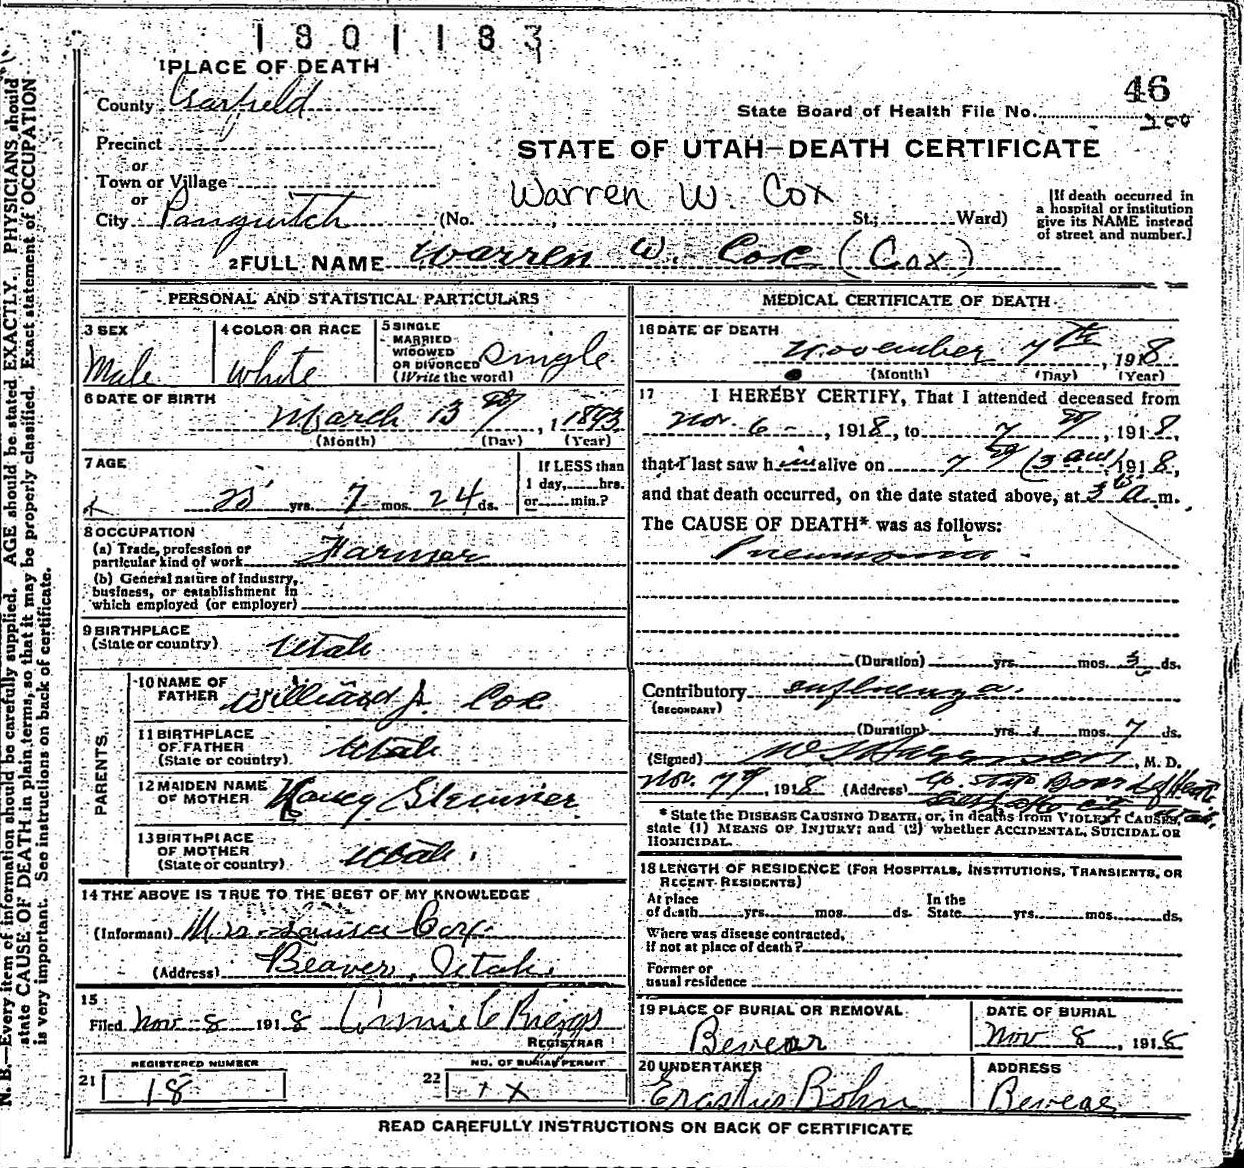 1801183
1 PLACE OF DEATH
County Garfield
46
State Board of Health File No.
200
Precinct
or
Town or Village
or
City Panguitch
STATE OF UTAH—DEATH CERTIFICATE
Warren W. Cox
(No. , St.; Ward)
[If death occurred in
a hospital or institution
give its NAME instead
of street and number.]
2 FULL NAME Warren W. Cox (Cox)
PERSONAL AND STATISTICAL PARTICULARS
3 SEX
Male
4 COLOR OR RACE
White
5 SINGLE
MARRIED
WIDOWED
OR DIVORCED
(Write the word)
Single
6 DATE OF BIRTH
March 13th, 1893
(Month) (Day) (Year)
7 AGE
25 yrs. 7 mos. 24 ds.
If LESS than
1 day, hrs.
or min.?
8 OCCUPATION
(a) Trade, profession or
particular kind of work Farmer
(b) General nature of industry,
business, or establishment in
which employed (or employer)
9 BIRTHPLACE
(State or country) Utah
PARENTS
10 NAME OF
FATHER Williard J. Cox
11 BIRTHPLACE
OF FATHER
(State or country) Utah
12 MAIDEN NAME
OF MOTHER Nancy
13 BIRTHPLACE
OF MOTHER
(State or country) Utah.
14 THE ABOVE IS TRUE TO THE BEST OF MY KNOWLEDGE
(Informant) Mrs Louisa Cox
(Address) Beaver, Utah.
15
Filed Nov 8 1918 Annie C Riggs
REGISTRAR
REGISTERED NUMBER
21 18
NO. OF BURIAL PERMIT
22 X
MEDICAL CERTIFICATE OF DEATH
16 DATE OF DEATH
November 7th, 1918
(Month) (Day) (Year)
17 I HEREBY CERTIFY, That I attended deceased from
Nov. 6 -, 1918, to 7th, 1918,
that I last saw him alive on 7th (3 am) 1918,
and that death occurred, on the date stated above, at 5 A. m.
The CAUSE OF DEATH* was as follows:
Pneumonia
(Duration) yrs. mos. 3 ds.
Contributory Influenza.
(SECONDARY)
(Duration) yrs. mos. 7 ds.
(Signed) , M. D.
Nov. 7th, 1918 (Address) % State Board of Health
Salt Lake City Utah.
* State the DISEASE CAUSING DEATH, or, in deaths from VIOLENT CAUSES,
state (1) MEANS OF INJURY; and (2) whether ACCIDENTAL, SUICIDAL OR
HOMICIDAL.
18 LENGTH OF RESIDENCE (FOR HOSPITALS, INSTITUTIONS, TRANSIENTS, OR
RECENT RESIDENTS)
At place
of death yrs. mos. ds.
In the
State yrs. mos. ds.
Where was disease contracted,
if not at place of death?
Former or
usual residence
19 PLACE OF BURIAL OR REMOVAL
Beveear
DATE OF BURIAL
Nov 8, 1918
20 UNDERTAKER
Erastus Bohn
ADDRESS
Bevear
READ CAREFULLY INSTRUCTIONS ON BACK OF CERTIFICATE
N. B.—Every item of information should be carefully supplied. AGE should be stated EXACTLY. PHYSICIANS should
state CAUSE OF DEATH in plain terms, so that it may be properly classified. Exact statement of OCCUPATION
is very important. See instructions on back of certificate.